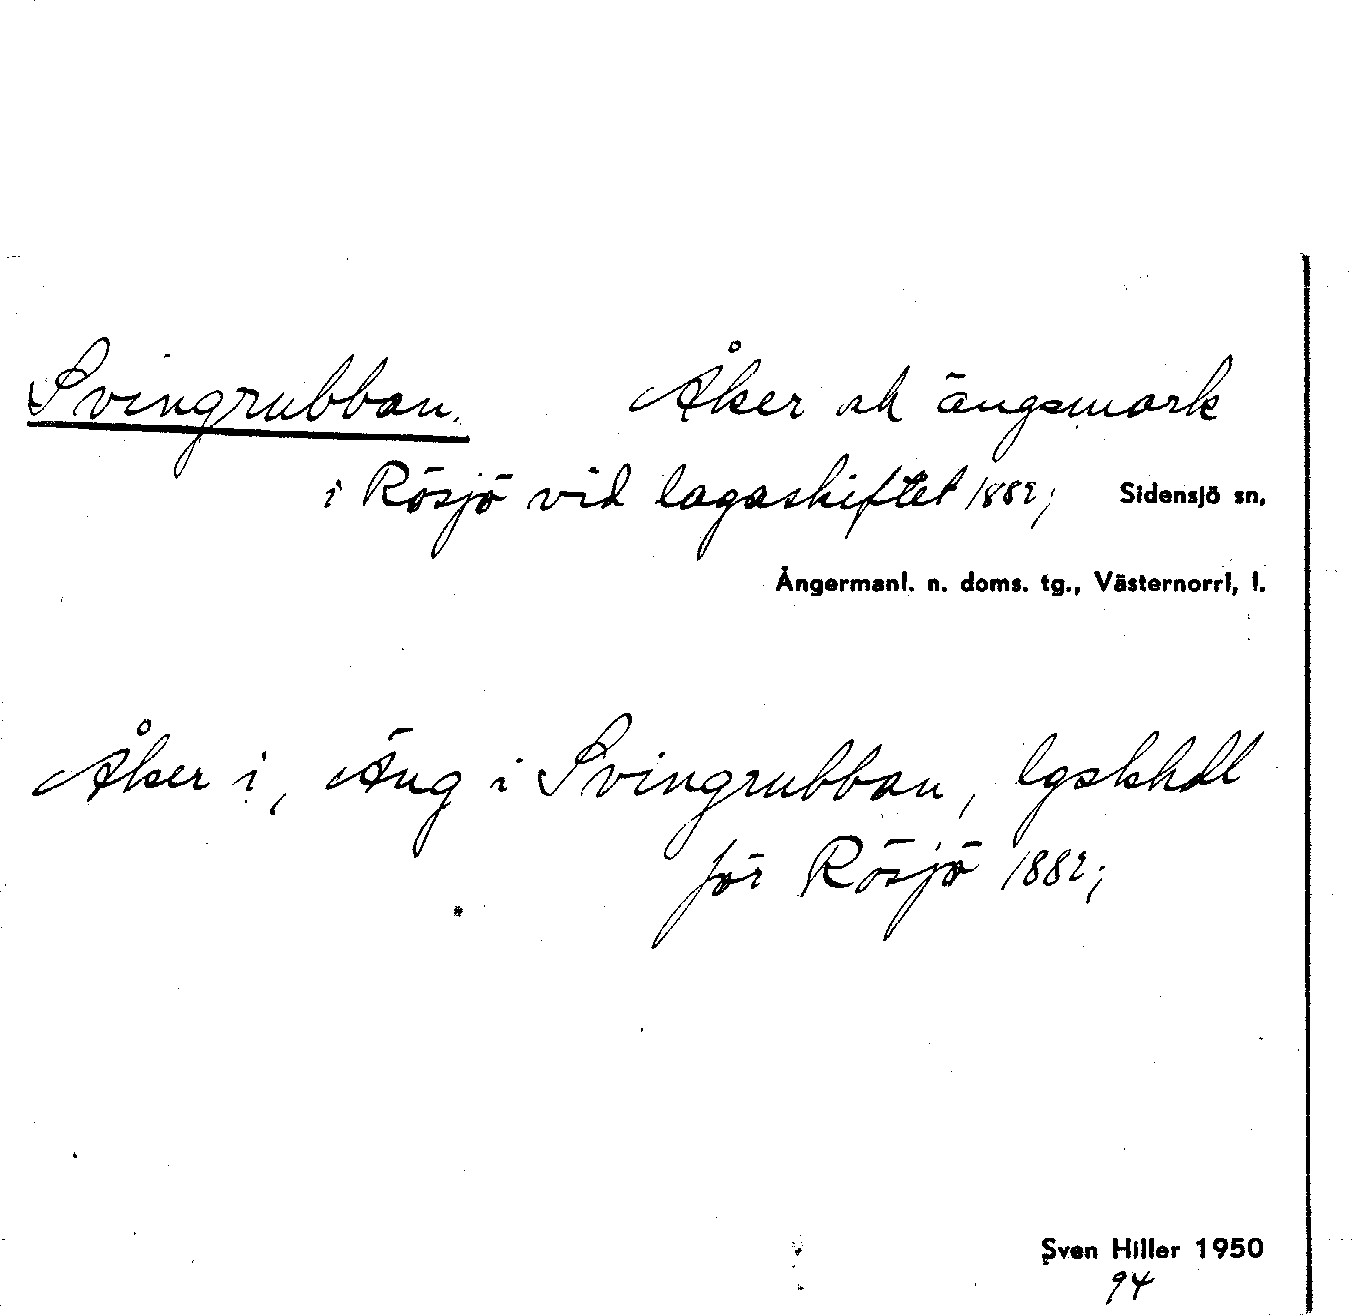 Svingrubban. Åker och ängsmark
i Rösjö vid lagaskiftet 1882; Sidensjö sn,
Ångermanl. n. doms. tg., Västernorrl, l.
Åker i, Äng i Svingrubban, lgskhdl
för Rösjö 1882;
Sven Hiller 1950
94